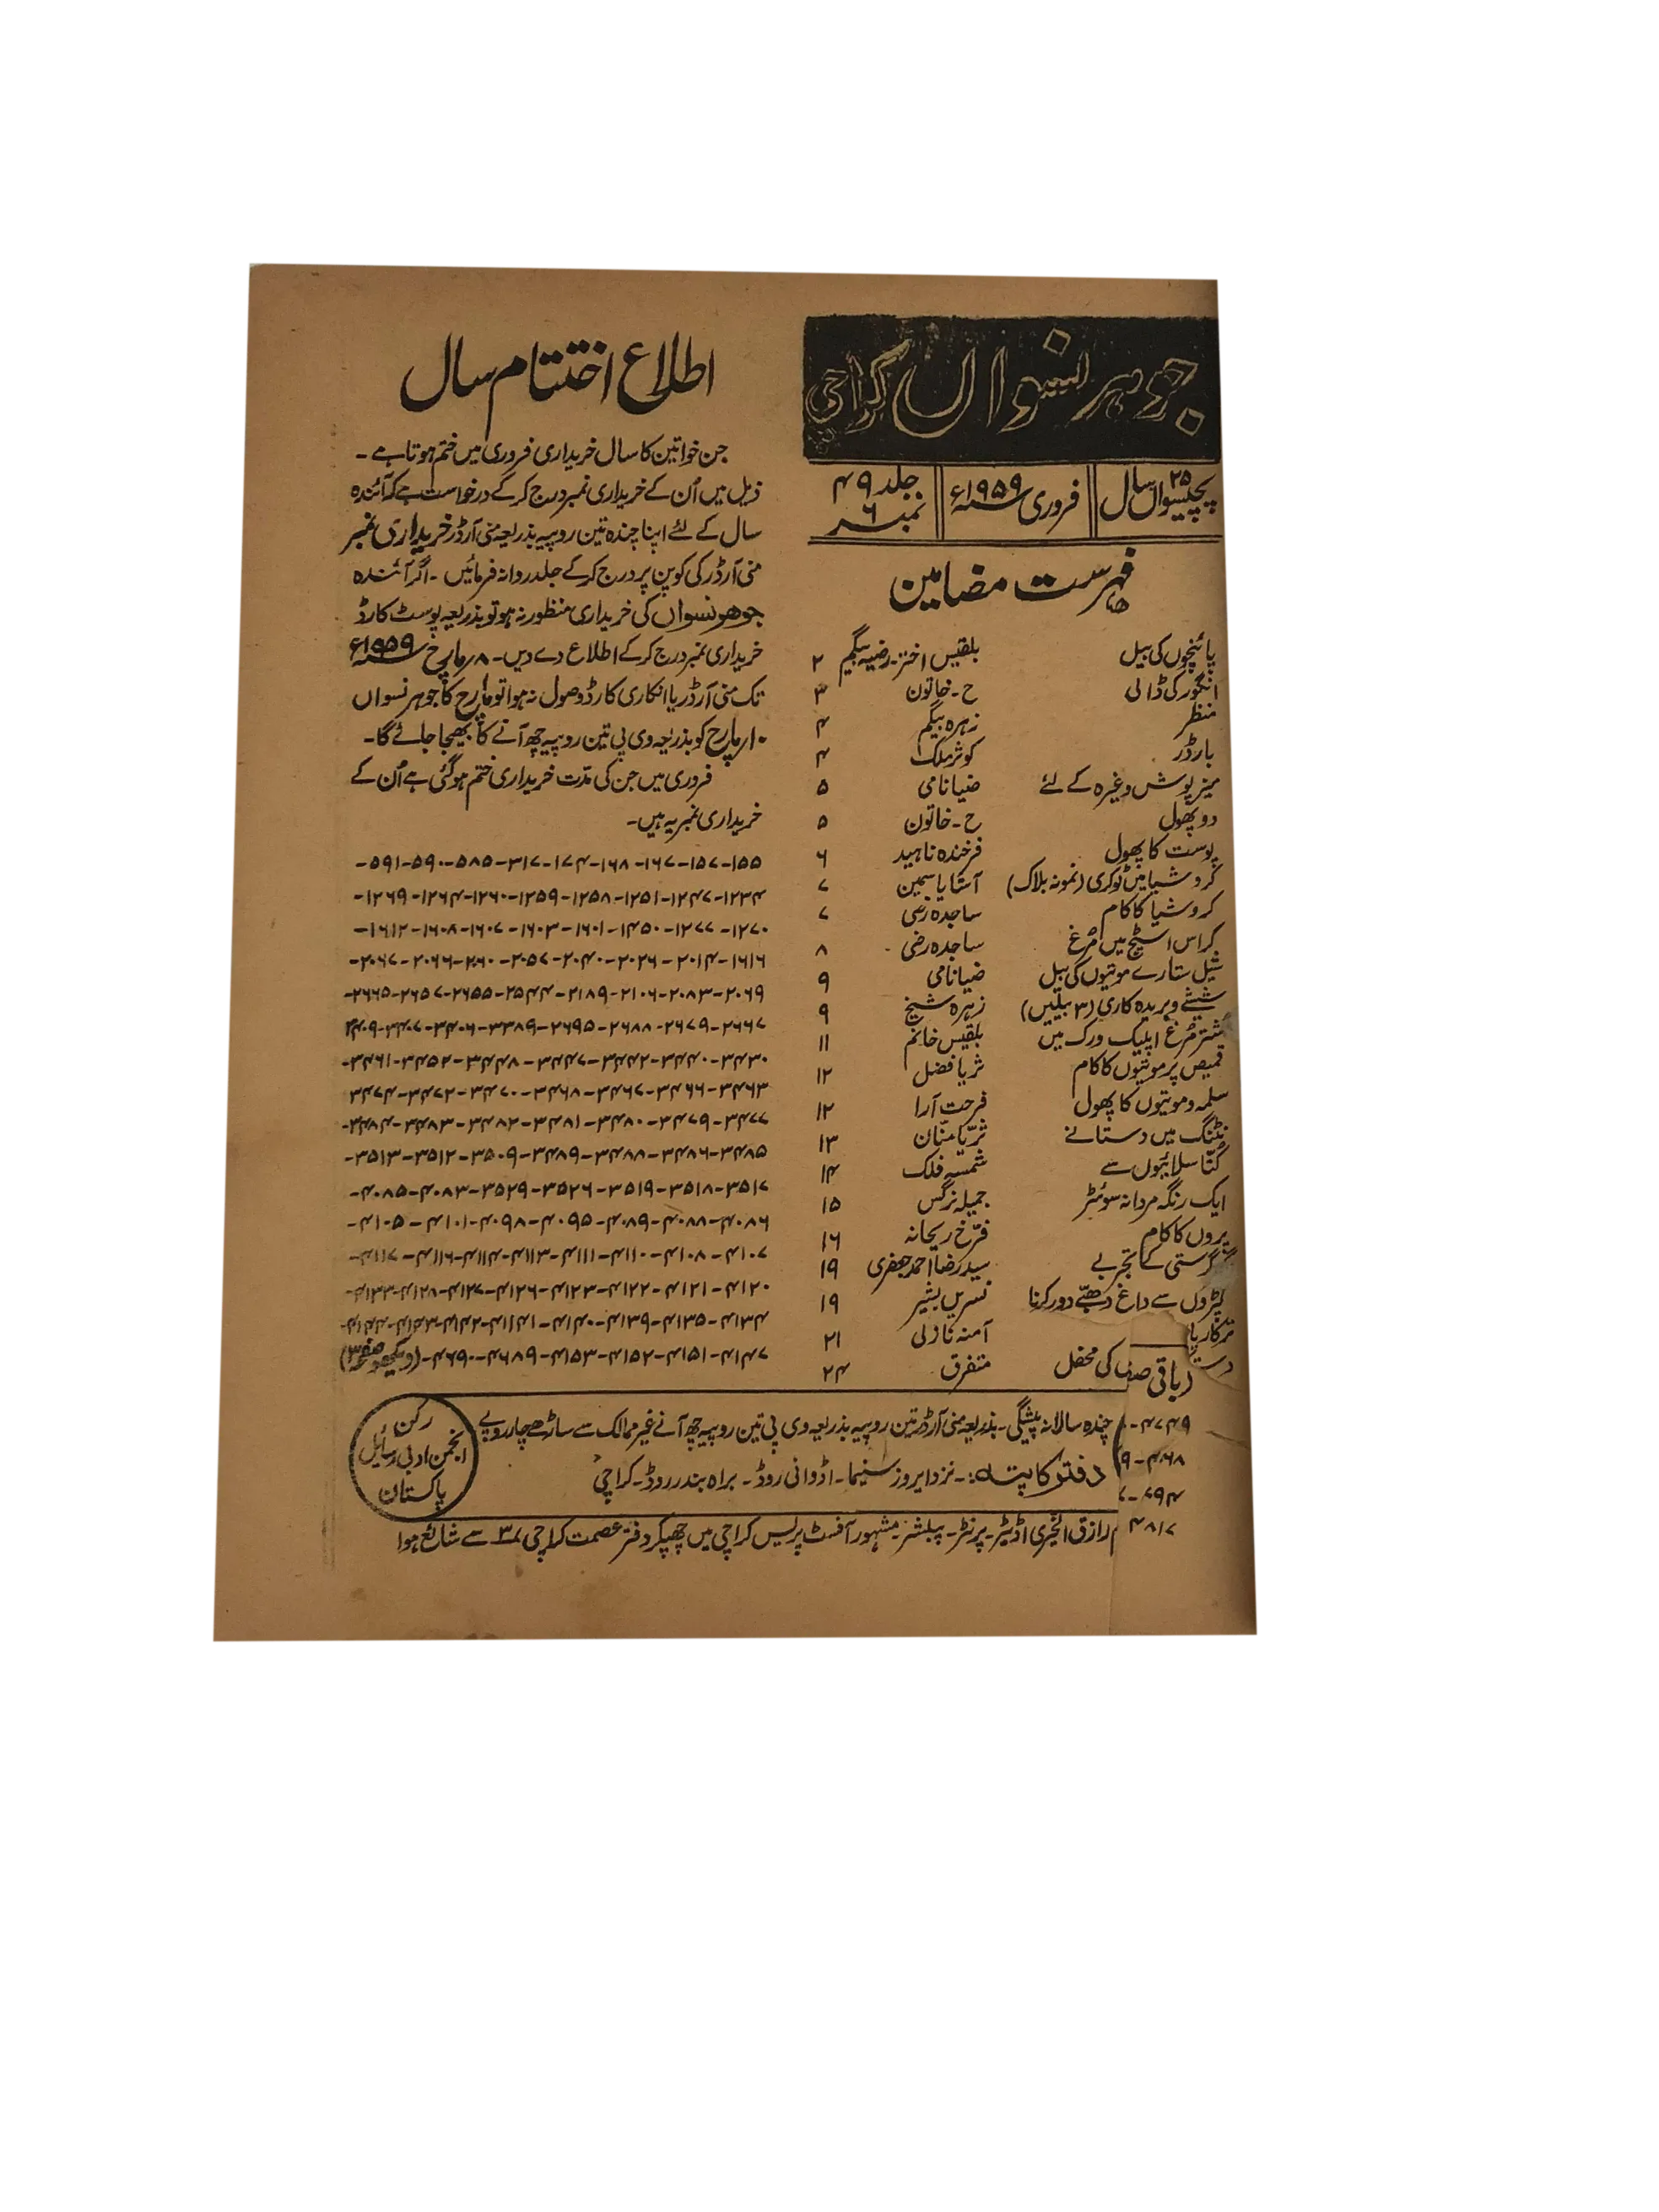 جوہر نسواں کراچی
۲۵
پچیسواں سال
فروری ۱۹۵۹ء
جلد ۴۹
نمبر ۶
فہرست مضامین
پائنچوں کی بیل بلقیس اختر۔ رضیہ بیگم ۲
انگور کی ڈالی ح۔ خاتون ۳
منظر زہرہ بیگم ۴
بارڈر کوثر ملک ۴
میز پوش وغیرہ کے لئے ضیا نامی ۵
دو پھول ح۔ خاتون ۵
پوست کا پھول فرخندہ ناہید ۶
کروشیا میں ٹوکری (نمونہ بلاک) آشا یاسمین ۷
کروشیا کا کام ساجدہ رضی ۷
کراس اسٹیچ میں مُرغ ساجدہ رضی ۸
شیل ستارے موتیوں کی بیل ضیا نامی ۹
شیشے و بریدہ کاری (۳ بیلیں) زہرہ شیخ ۹
شتر مُرغ اپلیک ورک میں بلقیس خانم ۱۱
قمیض پر موتیوں کا کام ثریا فضل ۱۲
سلمہ و موتیوں کا پھول فرحت آرا ۱۲
نٹنگ میں دستانے ثریّا منّان ۱۳
کُتّا سلائیوں سے شمسہ فلک ۱۴
ایک رنگہ مردانہ سوئٹر جمیلہ نرگس ۱۵
پروں کا کام فرّخ ریحانہ ۱۶
گرستی کے تجربے سید رضا احمد جعفری ۱۹
کپڑوں سے داغ دھبّے دور کرنا نسرین بشیر ۱۹
ترکاریا آمنہ نازلی ۲۱
کی محفل متفرق ۲۴
(باقی صف
۴۷۴۹-
۴۰۶۸-۹
۴۷۹۴-۷
۴۸۱۷
اطلاع اختتام سال
جن خواتین کا سال خریداری فروری میں ختم ہوتا ہے۔
ذیل میں اُن کے خریداری نمبر درج کر کے درخواست ہے کہ آئندہ
سال کے لئے اپنا چندہ تین روپیہ بذریعہ منی آرڈر خریداری نمبر
منی آرڈر کی کوپن پر درج کر کے جلد روانہ فرمائیں۔ اگر آئندہ
جوہر نسواں کی خریداری منظور نہ ہو تو بذریعہ پوسٹ کارڈ
خریداری نمبر درج کر کے اطلاع دے دیں۔ ۸ر مارچ ۱۹۵۹ء
تک منی آرڈر یا انکاری کارڈ وصول نہ ہوا تو مارچ کا جوہر نسواں
۱۰ر مارچ کو بذریعہ وی پی تین روپیہ چھ آنے کا بھیجا جائے گا۔
فروری میں جن کی مدّت خریداری ختم ہو گئی ہے اُن کے
خریداری نمبر یہ ہیں۔
۱۵۵-۱۵۷-۱۶۷-۱۶۸-۱۷۴-۳۱۷-۵۸۵-۵۹۰-۵۹۱-
۱۲۳۴-۱۲۴۷-۱۲۵۱-۱۲۵۸-۱۲۵۹-۱۲۶۰-۱۲۶۴-۱۲۶۹-
۱۲۷۰-۱۲۷۷-۱۴۵۰-۱۶۰۱-۱۶۰۳-۱۶۰۷-۱۶۰۸-۱۶۱۲-
۱۶۱۶-۲۰۱۴-۲۰۲۶-۲۰۴۰-۲۰۵۷-۲۰۶۰-۲۰۶۶-۲۰۶۷-
۲۰۶۹-۲۰۸۳-۲۱۰۶-۲۱۸۹-۲۵۴۴-۲۶۵۵-۲۶۵۷-۲۶۶۵-
۲۶۶۷-۲۶۷۹-۲۶۸۸-۲۶۹۵-۳۳۷۹-۳۴۰۶-۳۴۰۷-۳۴۰۹
۳۴۳۰-۳۴۴۰-۳۴۴۲-۳۴۴۶-۳۴۴۷-۳۴۵۵-۳۴۶۱-
۳۴۶۳-۳۴۶۶-۳۴۶۷-۳۴۶۸-۳۴۷۰-۳۴۷۲-۳۴۷۴
۳۴۷۷-۳۴۷۹-۳۴۸۰-۳۴۸۱-۳۴۸۲-۳۴۸۳-۳۴۸۴-
۳۴۸۵-۳۴۸۶-۳۴۸۷-۳۴۸۹-۳۵۰۹-۳۵۱۲-۳۵۱۳-
۳۵۱۷-۳۵۱۸-۳۵۱۹-۳۵۲۶-۳۵۲۹-۴۰۸۳-۴۰۸۵-
۴۰۸۶-۴۰۸۷-۴۰۸۹-۴۰۹۵-۴۰۹۷-۴۱۰۱-۴۱۰۵-
۴۱۰۶-۴۱۰۷-۴۱۱۰-۴۱۱۱-۴۱۱۳-۴۱۱۴-۴۱۱۶-۴۱۱۷-
۴۱۲۰-۴۱۲۱-۴۱۲۲-۴۱۲۳-۴۱۲۶-۴۱۲۷-۴۱۲۸-۴۱۳۳-
۴۱۳۴-۴۱۳۵-۴۱۳۹-۴۱۴۰-۴۱۴۱-۴۱۴۲-۴۱۴۳-۴۱۴۴-
۴۱۴۷-۴۱۵۱-۴۱۵۲-۴۱۵۳-۴۶۷۹-۴۶۹۰-(دیکھو صفحہ ۳)
چندہ سالانہ پیشگی۔ بذریعہ منی آرڈر تین روپیہ بذریعہ وی پی تین روپیہ چھ آنے غیر ممالک سے ساڑھے چار روپے
دفتر کا پتہ:۔ نزد ایروز سنیما۔ اڈوانی روڈ۔ براہ بندر روڈ۔ کراچی
رکن
انجمن ادبی رسائل
پاکستان
رازق الخیری اڈیٹر۔ پرنٹر۔ پبلشر۔ مشہور آفسٹ پریس کراچی میں چھپکر دفتر عصمت کراچی ۳۷ سے شائع ہوا